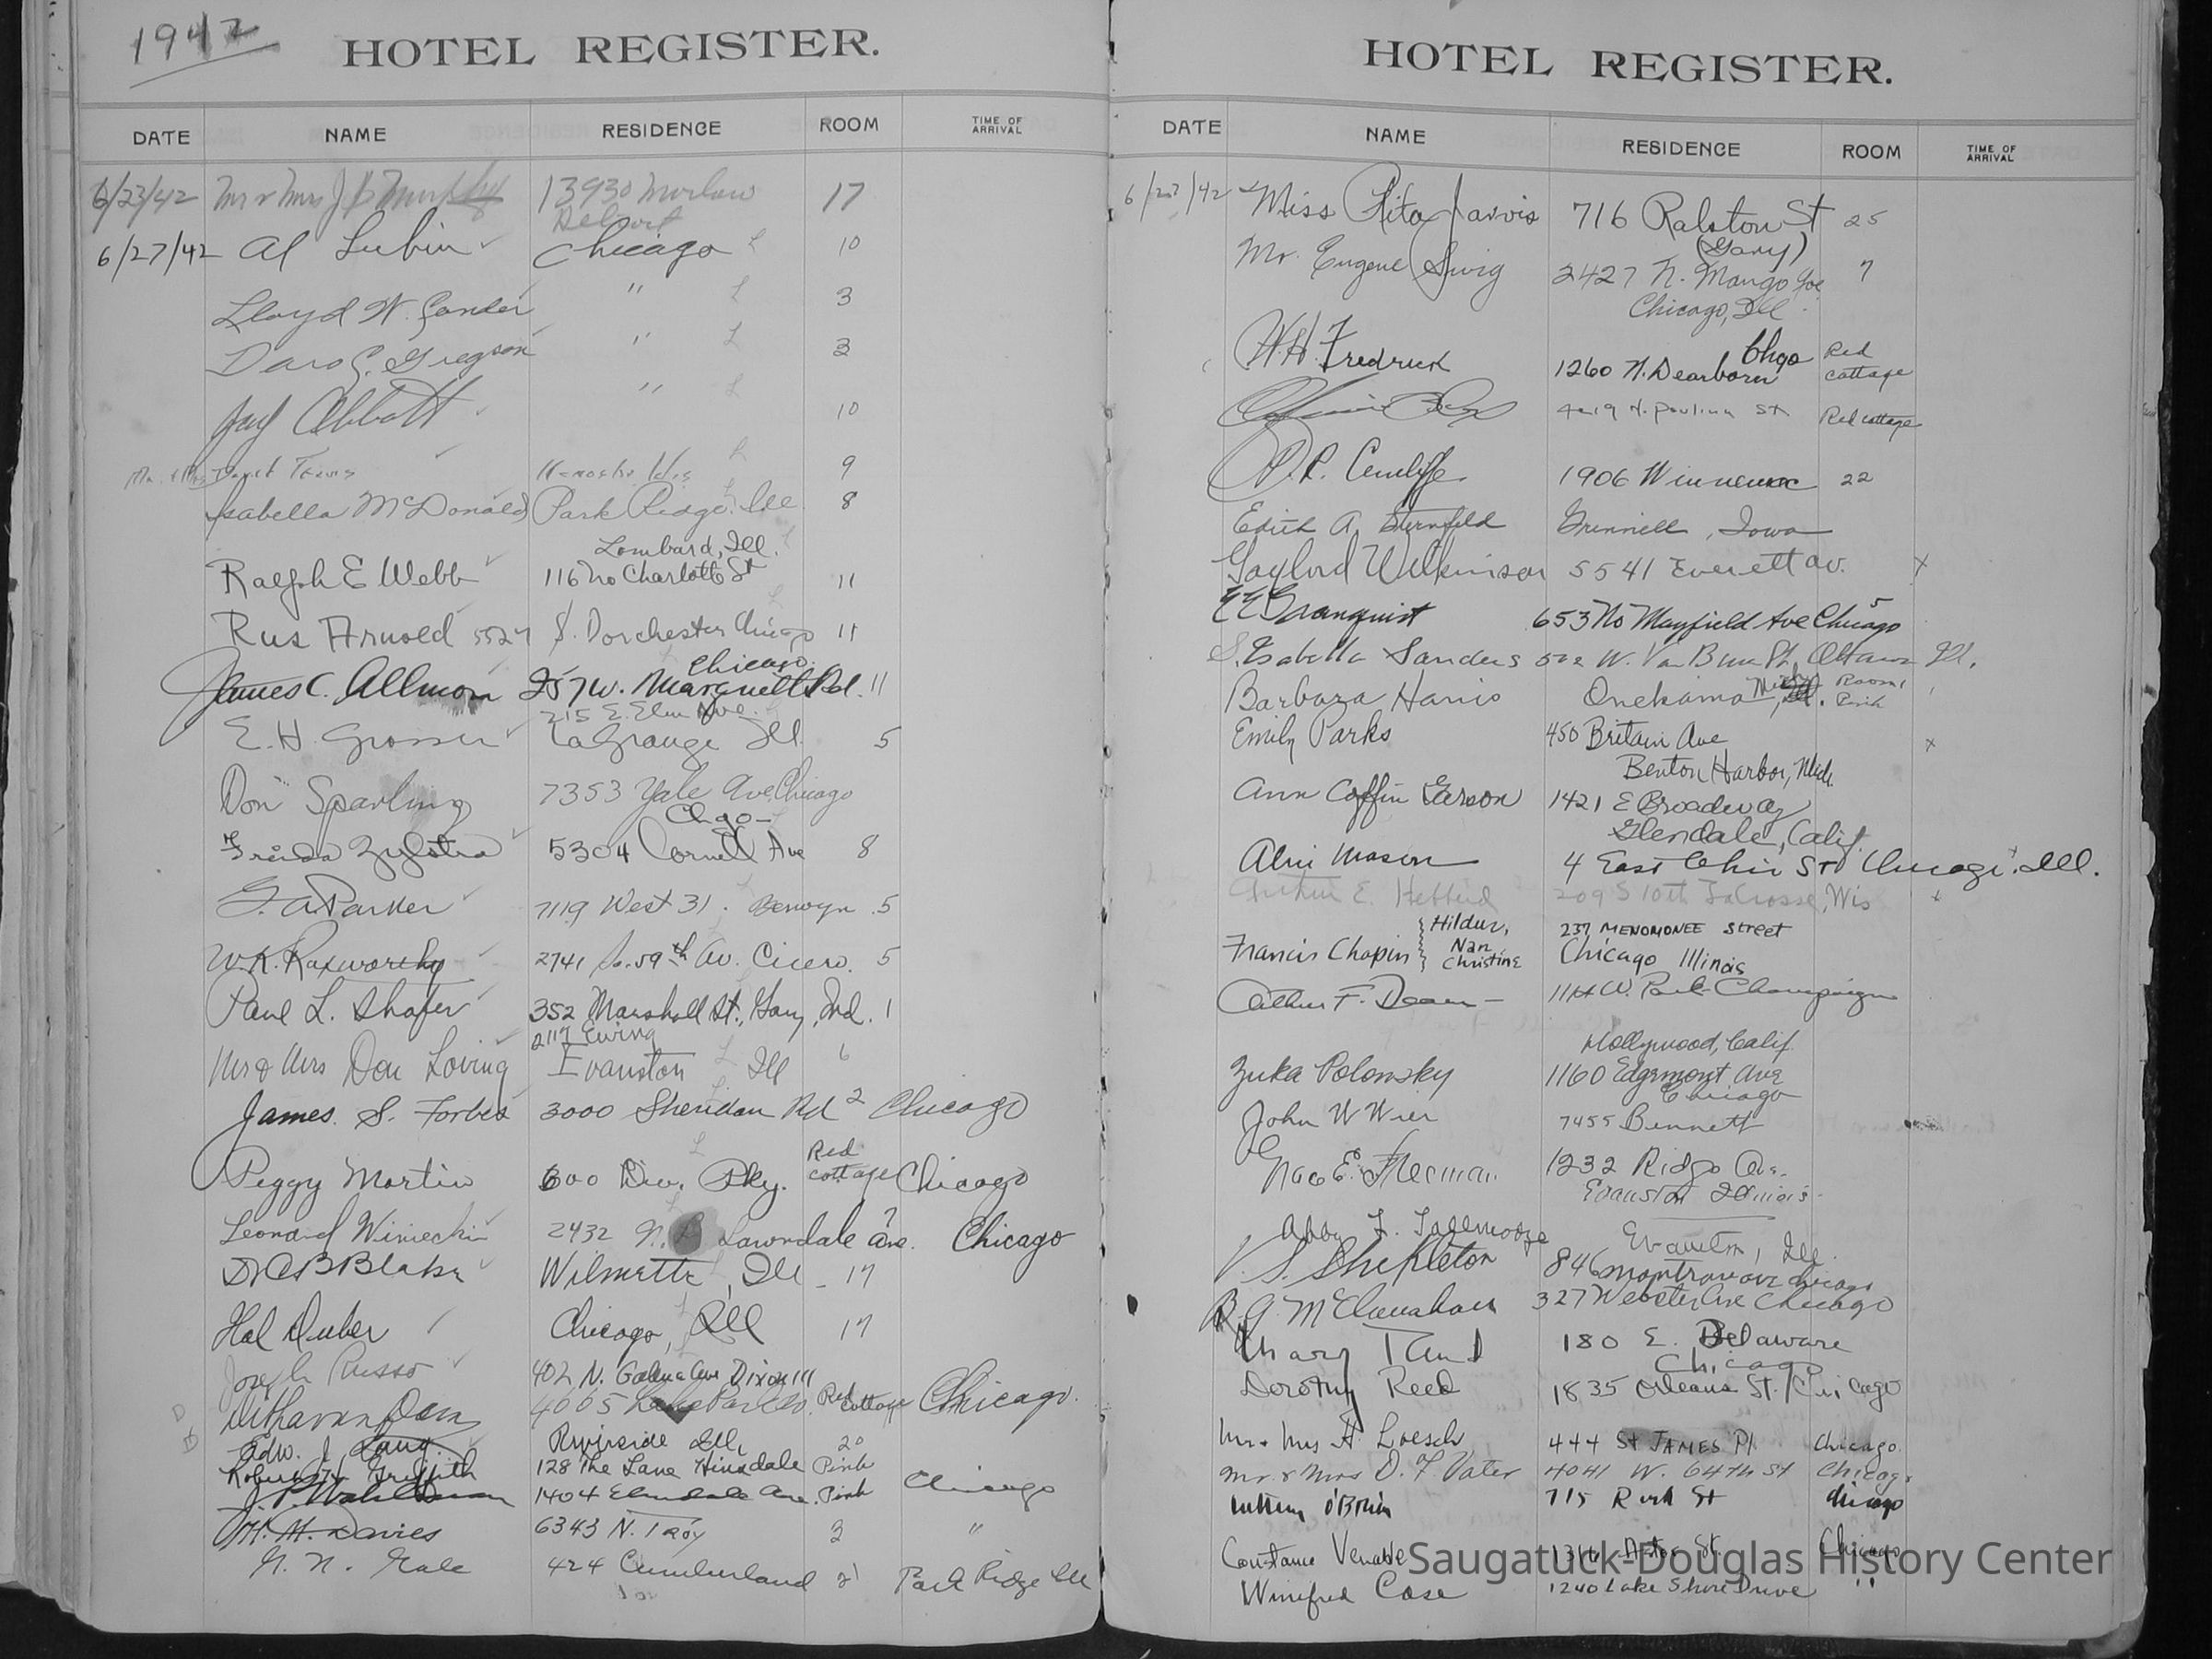 1942
HOTEL REGISTER.
DATE NAME RESIDENCE ROOM TIME OF ARRIVAL
6/23/42 Mr & Mrs J 13930 17
6/27/42 Al Lubin Chicago 10
Lloyd W. " 3
Daro Gregson " 3
Jay Abbott " 10
Mr. & Mrs 9
Isabella McDonald Park Ridge. Ill 8
Lombard, Ill.
Ralph E Webb 116 No Charlotte St 11
Rus Arnold 5527 S. Dorchester Chicago 11
Chicago
James C. Allmon 257 W. Marquette Rd. 11
215 E. Elm Ave.
E. H. Grosser LaGrange Ill. 5
Don Sparling 7353 Yale Ave Chicago
Chgo-
Frieda Zylstra 5304 Cornell Ave 8
G. A. Parker 7119 West 31. Berwyn 5
W. K. Raxworthy 2741 So. 59th Av. Cicero. 5
Paul L. Shafer 352 Marshall St., Gary, Ind. 1
2117 Ewing
Mr & Mrs Don Loving Evanston Ill 6
James S. Forbes 3000 Sheridan Rd 2 Chicago
Peggy Martin 600 Div. Pky. Red cottage Chicago
Leonard Winiecki 2432 N. Lawndale Ave. ? Chicago
Dr C B Blake Wilmette, Ill - 17
Hal Duber Chicago, Ill 17
Joseph Russo 402 N. Galena Ave Dixon Ill
4065 Lake Park Red cottage Chicago.
Edw. J. Lang. Riverside Ill, 20
Robert H. Griffith 128 The Lane Hinsdale Pink
1404 Elmdale Ave. Pink Chicago
H. H. Davies 6343 N. Troy 3 "
N. N. Gale 424 Cumberland 21 Park Ridge Ill
HOTEL REGISTER.
DATE NAME RESIDENCE ROOM TIME OF ARRIVAL
6/27/42 Miss Rita Jarvis 716 Ralston St 25
(Gary)
Mr. Eugene Swig 2427 N. Mango Ave 7
Chicago, Ill.
W. H. Fredrick 1260 N. Dearborn Chgo Red cottage
N. Paulina St Red cottage
1906 Winnemac 22
Edith A. Sternfeld Grinnell, Iowa
Gaylord Wilkinson 5541 Everett av. x
Granquist 653 No Mayfield Ave Chicago 5
S. Isabella Sanders 502 W. Van Buren St, Ottawa Ill.
Barbara Harris Onekama, Mich. Room 1 Pink
Emily Parks 450 Britain Ave x
Benton Harbor, Mich.
Ann Coffin 1421 E Broadway
Glendale, Calif.
Mason 4 East Ohio St Chicago. Ill.
Arthur E. 209 S 10th LaCrosse, Wis x
Francis Chapin { Hildur, Nan Christine 237 MENOMONEE Street
Chicago Illinois
Arthur F. Dean - 1114 W. Park Champaign
Hollywood, Calif.
Zuka Polonsky 1160 Edgemont Ave
Chicago
John W Wier 7455 Bennett
Grace E. 1232 Ridge Av.
Evanston Illinois.
Abby F. Evanston, Ill.
V. S. Shepleton 846 Montrose Ave Chicago
R. A. McClanahan 327 Webster Ave Chicago
Mary Rand 180 E. Delaware
Chicago
Dorothy Reed 1835 Orleans St. / Chicago
Mr + Mrs H. Loesch 444 St JAMES Pl. Chicago
Mr. & Mrs O. F. Vater 4041 W. 64th St Chicago
O'Brien 715 Rush St Chicago
Constance Venable 1316 Astor St. Chicago
Winifred Case 1240 Lake Shore Drive "
Saugatuck-Douglas History Center